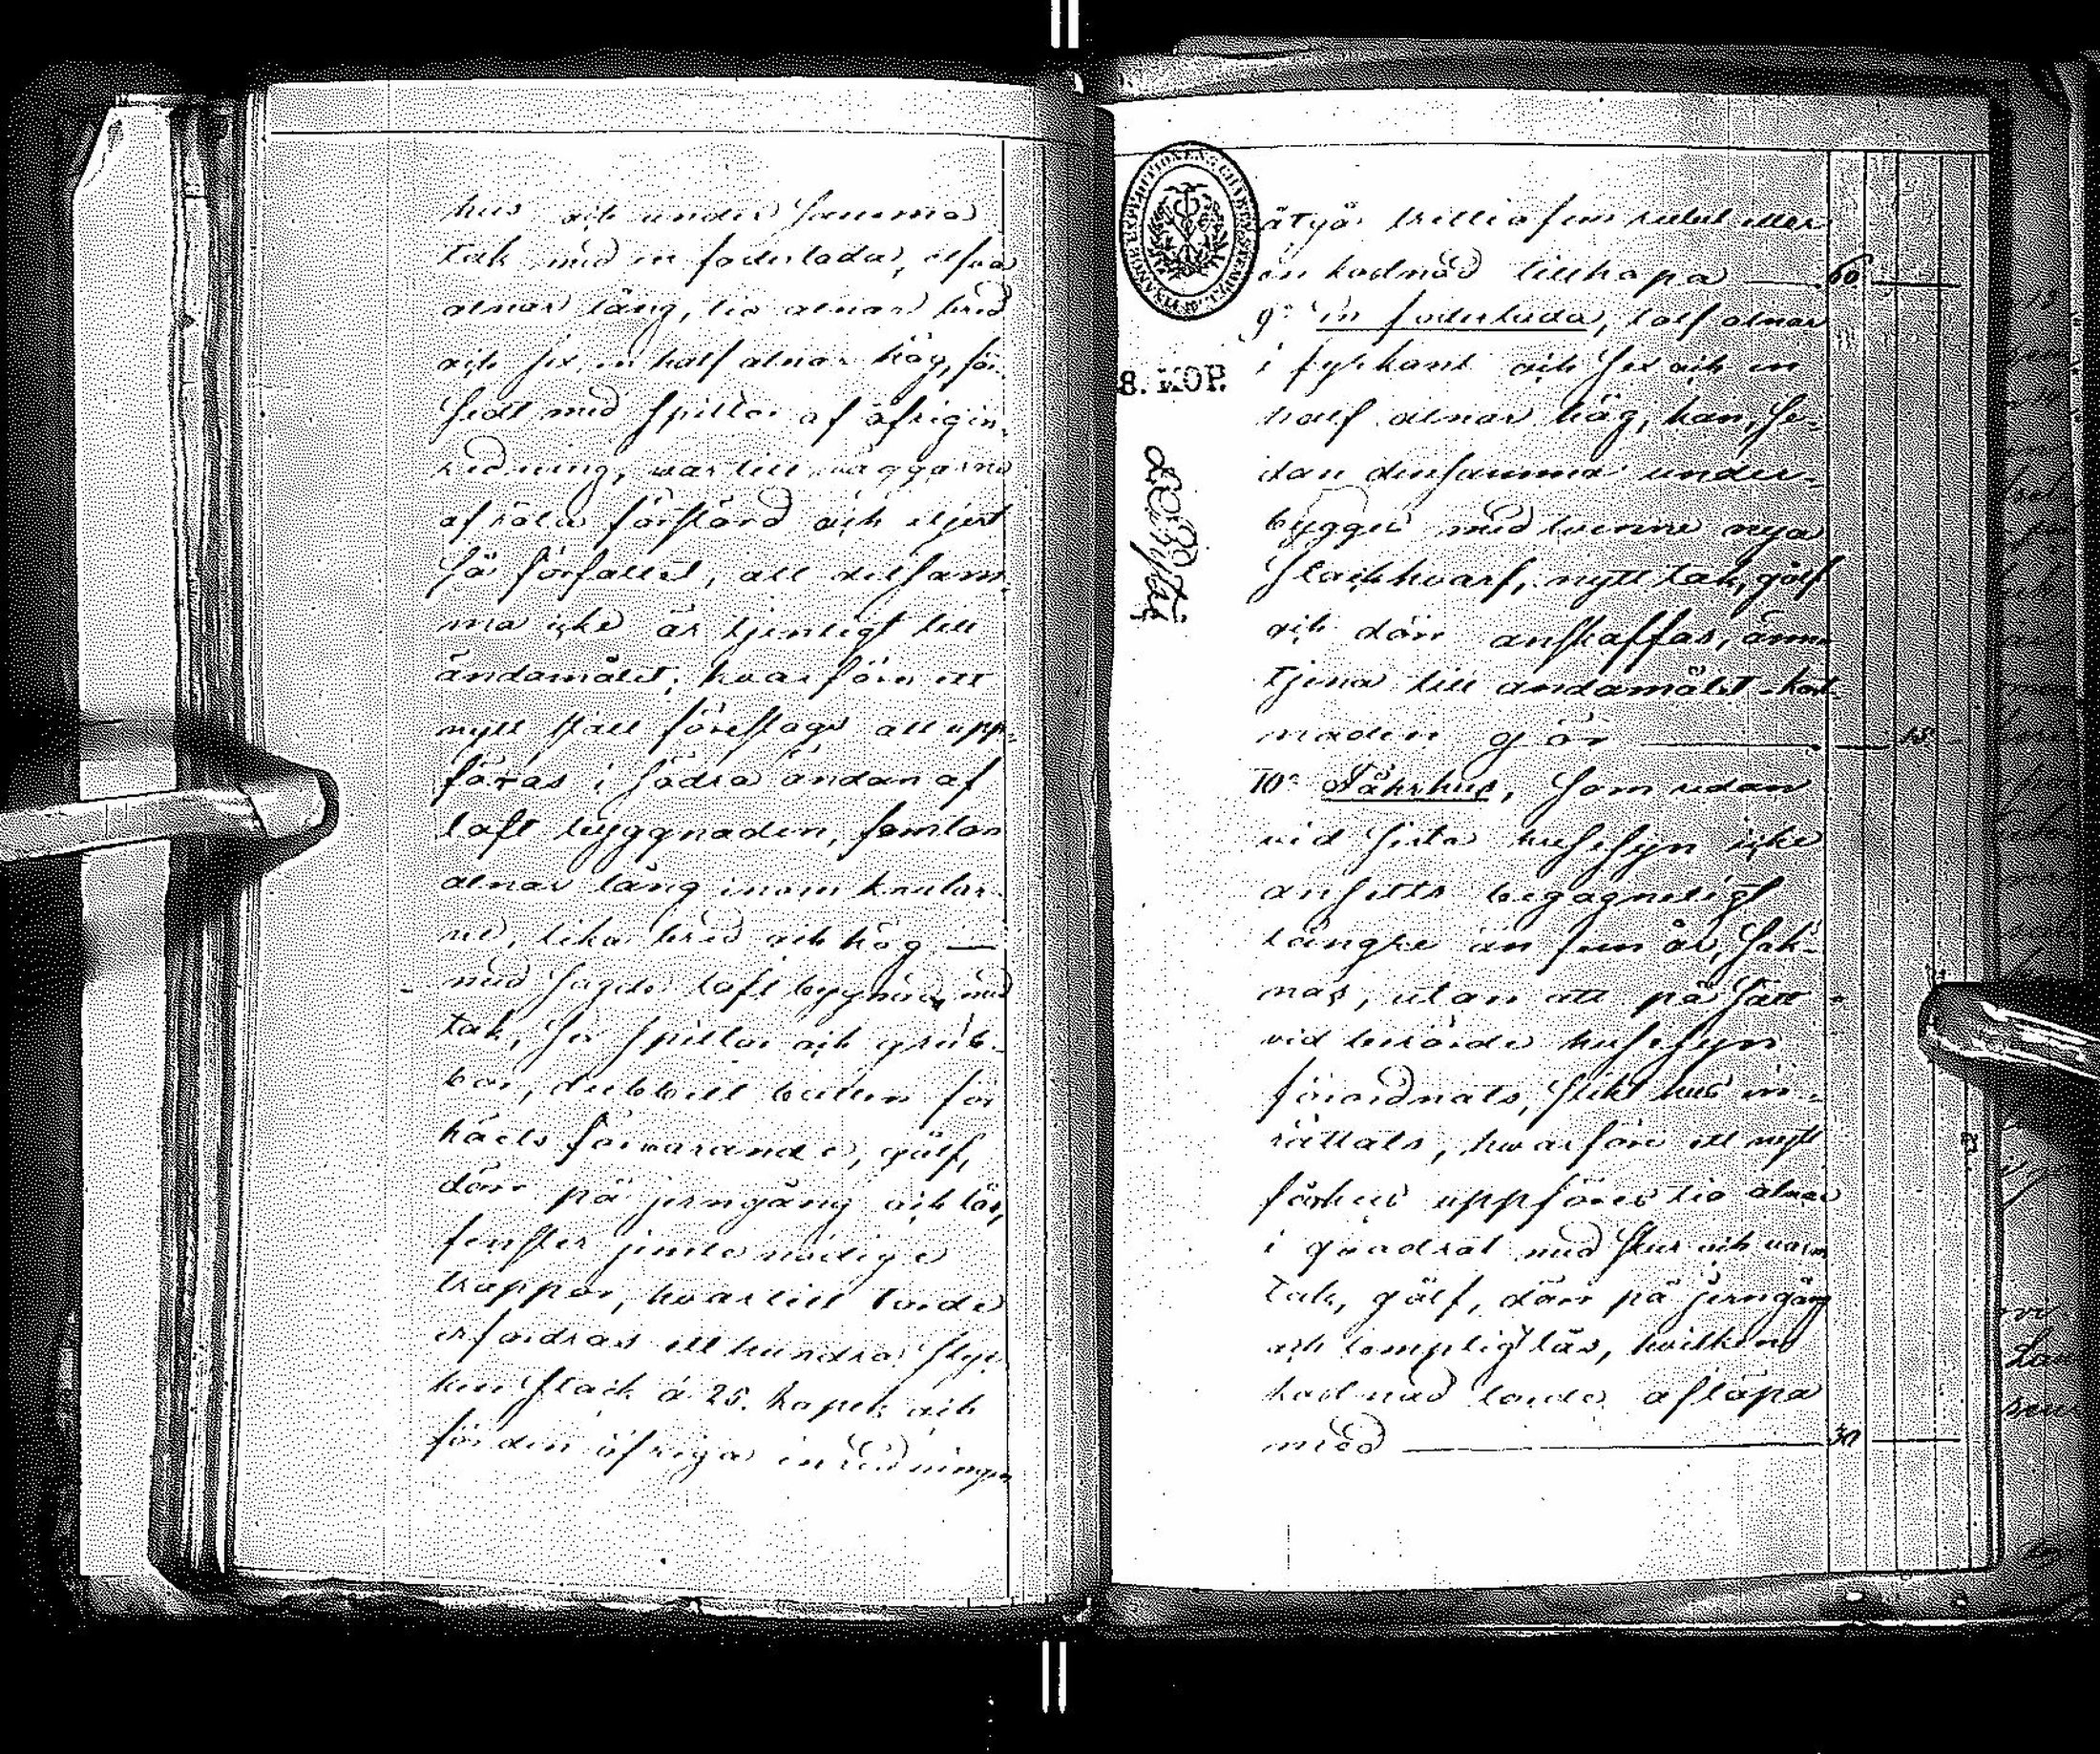 hus och under samma
tak med en foderlada, elfva
alnar lång, tio alnar bred
och sex en half alnar hög, för-
sedt med spiltor af öfrig in-
redning, vartill väggarne
af röta förstörd och eljest
så förfallet, att detsam-
ma icke är tjenligt till
ändamålet; hvarföre ett
nytt stall föreslogs att upp-
föras i södra ändan af
loft byggnaden, femton
alnar lång inom knutar-
ne, lika bred och hög —
med sagde loft byggnad, med
tak, sex spiltor och grub-
bor, dubbelt botten för
höets förvarande, gölf,
dörr på jerngång och lås,
fenster jemte nödige
trappor, hvartill torde
erfordras ett hundra styc-
ken stock á 25. kopek och
för den öfriga inredningen
åtgår trettiofem rubel eller
en kostnad tillhopa — 60 —
9o en foderlada, tolf alnar
i fyrkant och sex och en
half alnar hög, kan, se-
dan densamma under-
bygges med tvenne nya
stockhvarf, nytt tak, gölf
och dörr anskaffas, ännu
tjena till andamålet. Kost-
naden gör — 15 —
10o Fårhus, som redan
vid sista husesyn icke
ansetts begagneligt
längre än fem år, sak-
nas, utan att på sätt
vid berörde husesyn
förordnats, slikt hus in-
rättats, hvarföre ett nytt
fårhus uppföres tio alnar
i quadrat med stur och varm
tak, gölf, dörr på jerngång
och lempligt lås, hvilken
kostnad torde aflöpa
med — 30 —
8. KOP.